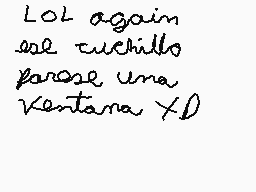 LOL again
ese cuchillo
parese una
ventana XD